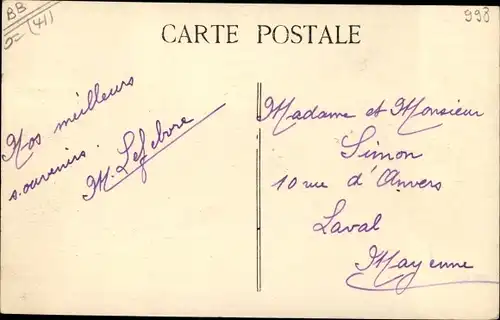 BB
(41)
998
CARTE POSTALE
Mos meilleurs
souvenirs.
M. Lefebvre
Madame et Monsieur
Simon
10 rue d'Anvers
Laval
Mayenne